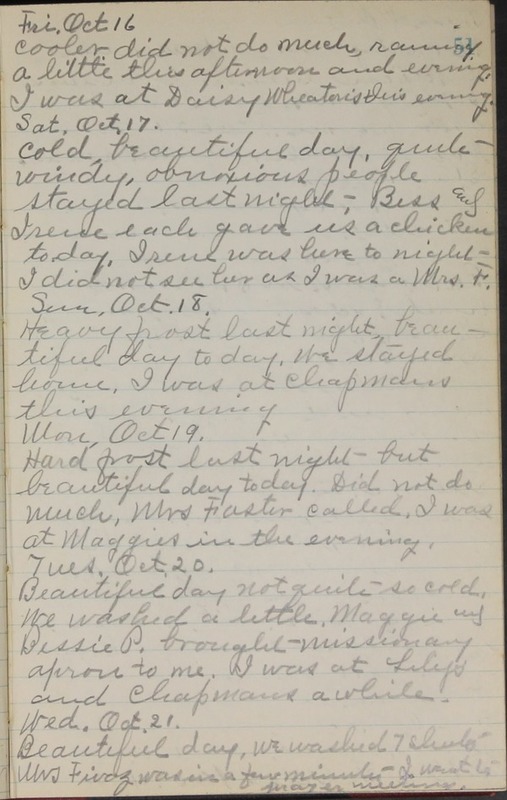 Fri. Oct 16
51
cooler did not do much, raining
a little this afternoon and evening.
I was at Daisy Wheaton's this evening.
Sat. Oct, 17.
cold, beautiful day, quite
windy, obnoxious people
stayed last night, Bess and
Irene each gave us a chicken
today, Irene was here to night -
I did not see her as I was a Mrs. F.
Sun, Oct. 18.
Heavy frost last night, beau-
tiful day to day, we stayed
home, I was at Chapmans
this evening
Mon, Oct 19.
Hard frost last night - but
beautiful day today. Did not do
much, Mrs Foster called, I was
at Maggies in the evening.
Tues. Oct. 20.
Beautiful day not quite so cold.
We washed a little, Maggie and
Bessie P. brought missionary
apron to me. I was at
and Chapmans awhile.
Wed. Oct. 21.
Beautiful day, we washed 7
Mrs was in a few minutes I went to
prayer meeting.